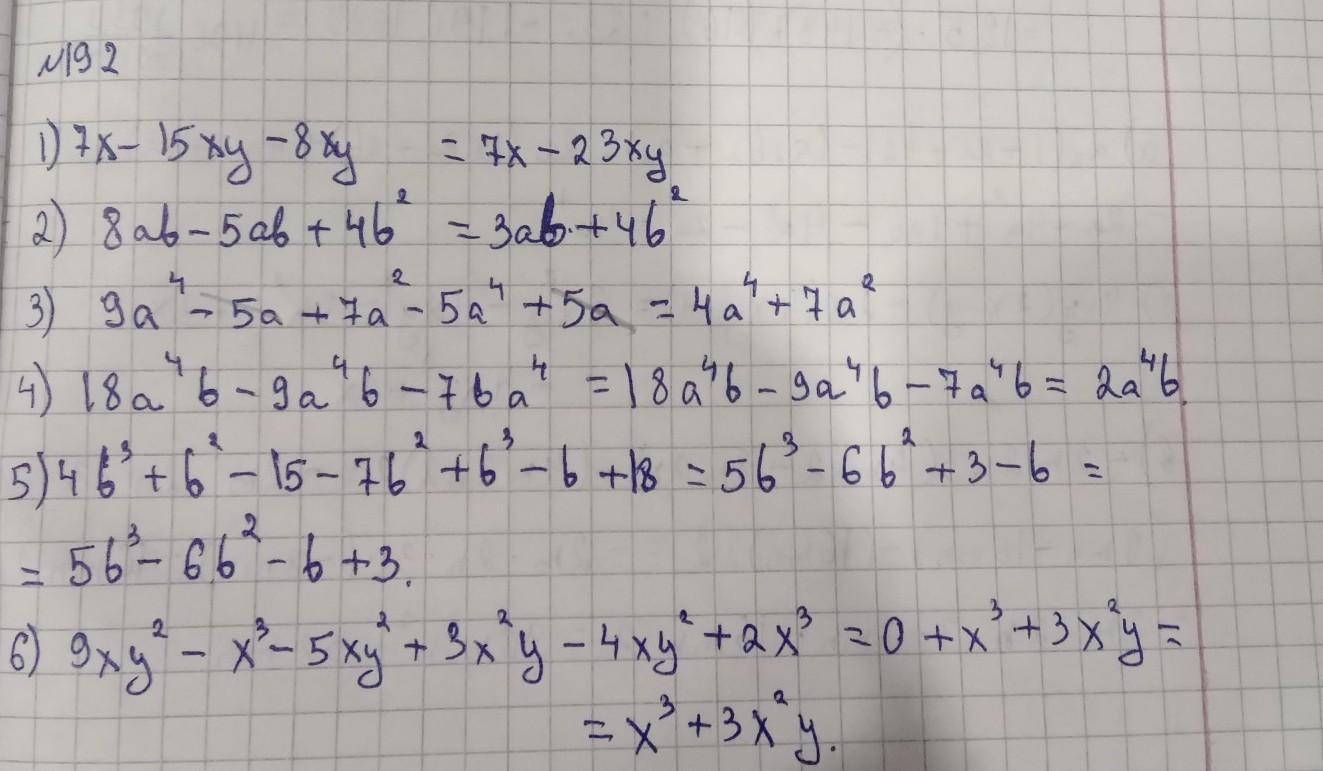 №192
1) 7x - 15xy - 8xy = 7x - 23xy
2) 8ab - 5ab + 4b² = 3ab + 4b²
3) 9a⁴ - 5a + 7a² - 5a⁴ + 5a = 4a⁴ + 7a²
4) 18a⁴b - 9a⁴b - 7ba⁴ = 18a⁴b - 9a⁴b - 7a⁴b = 2a⁴b.
5) 4b³ + b² - 15 - 7b² + b³ - b + 18 = 5b³ - 6b² + 3 - b =
= 5b³ - 6b² - b + 3.
6) 9xy² - x³ - 5xy² + 3x²y - 4xy² + 2x³ = 0 + x³ + 3x²y =
= x³ + 3x²y.